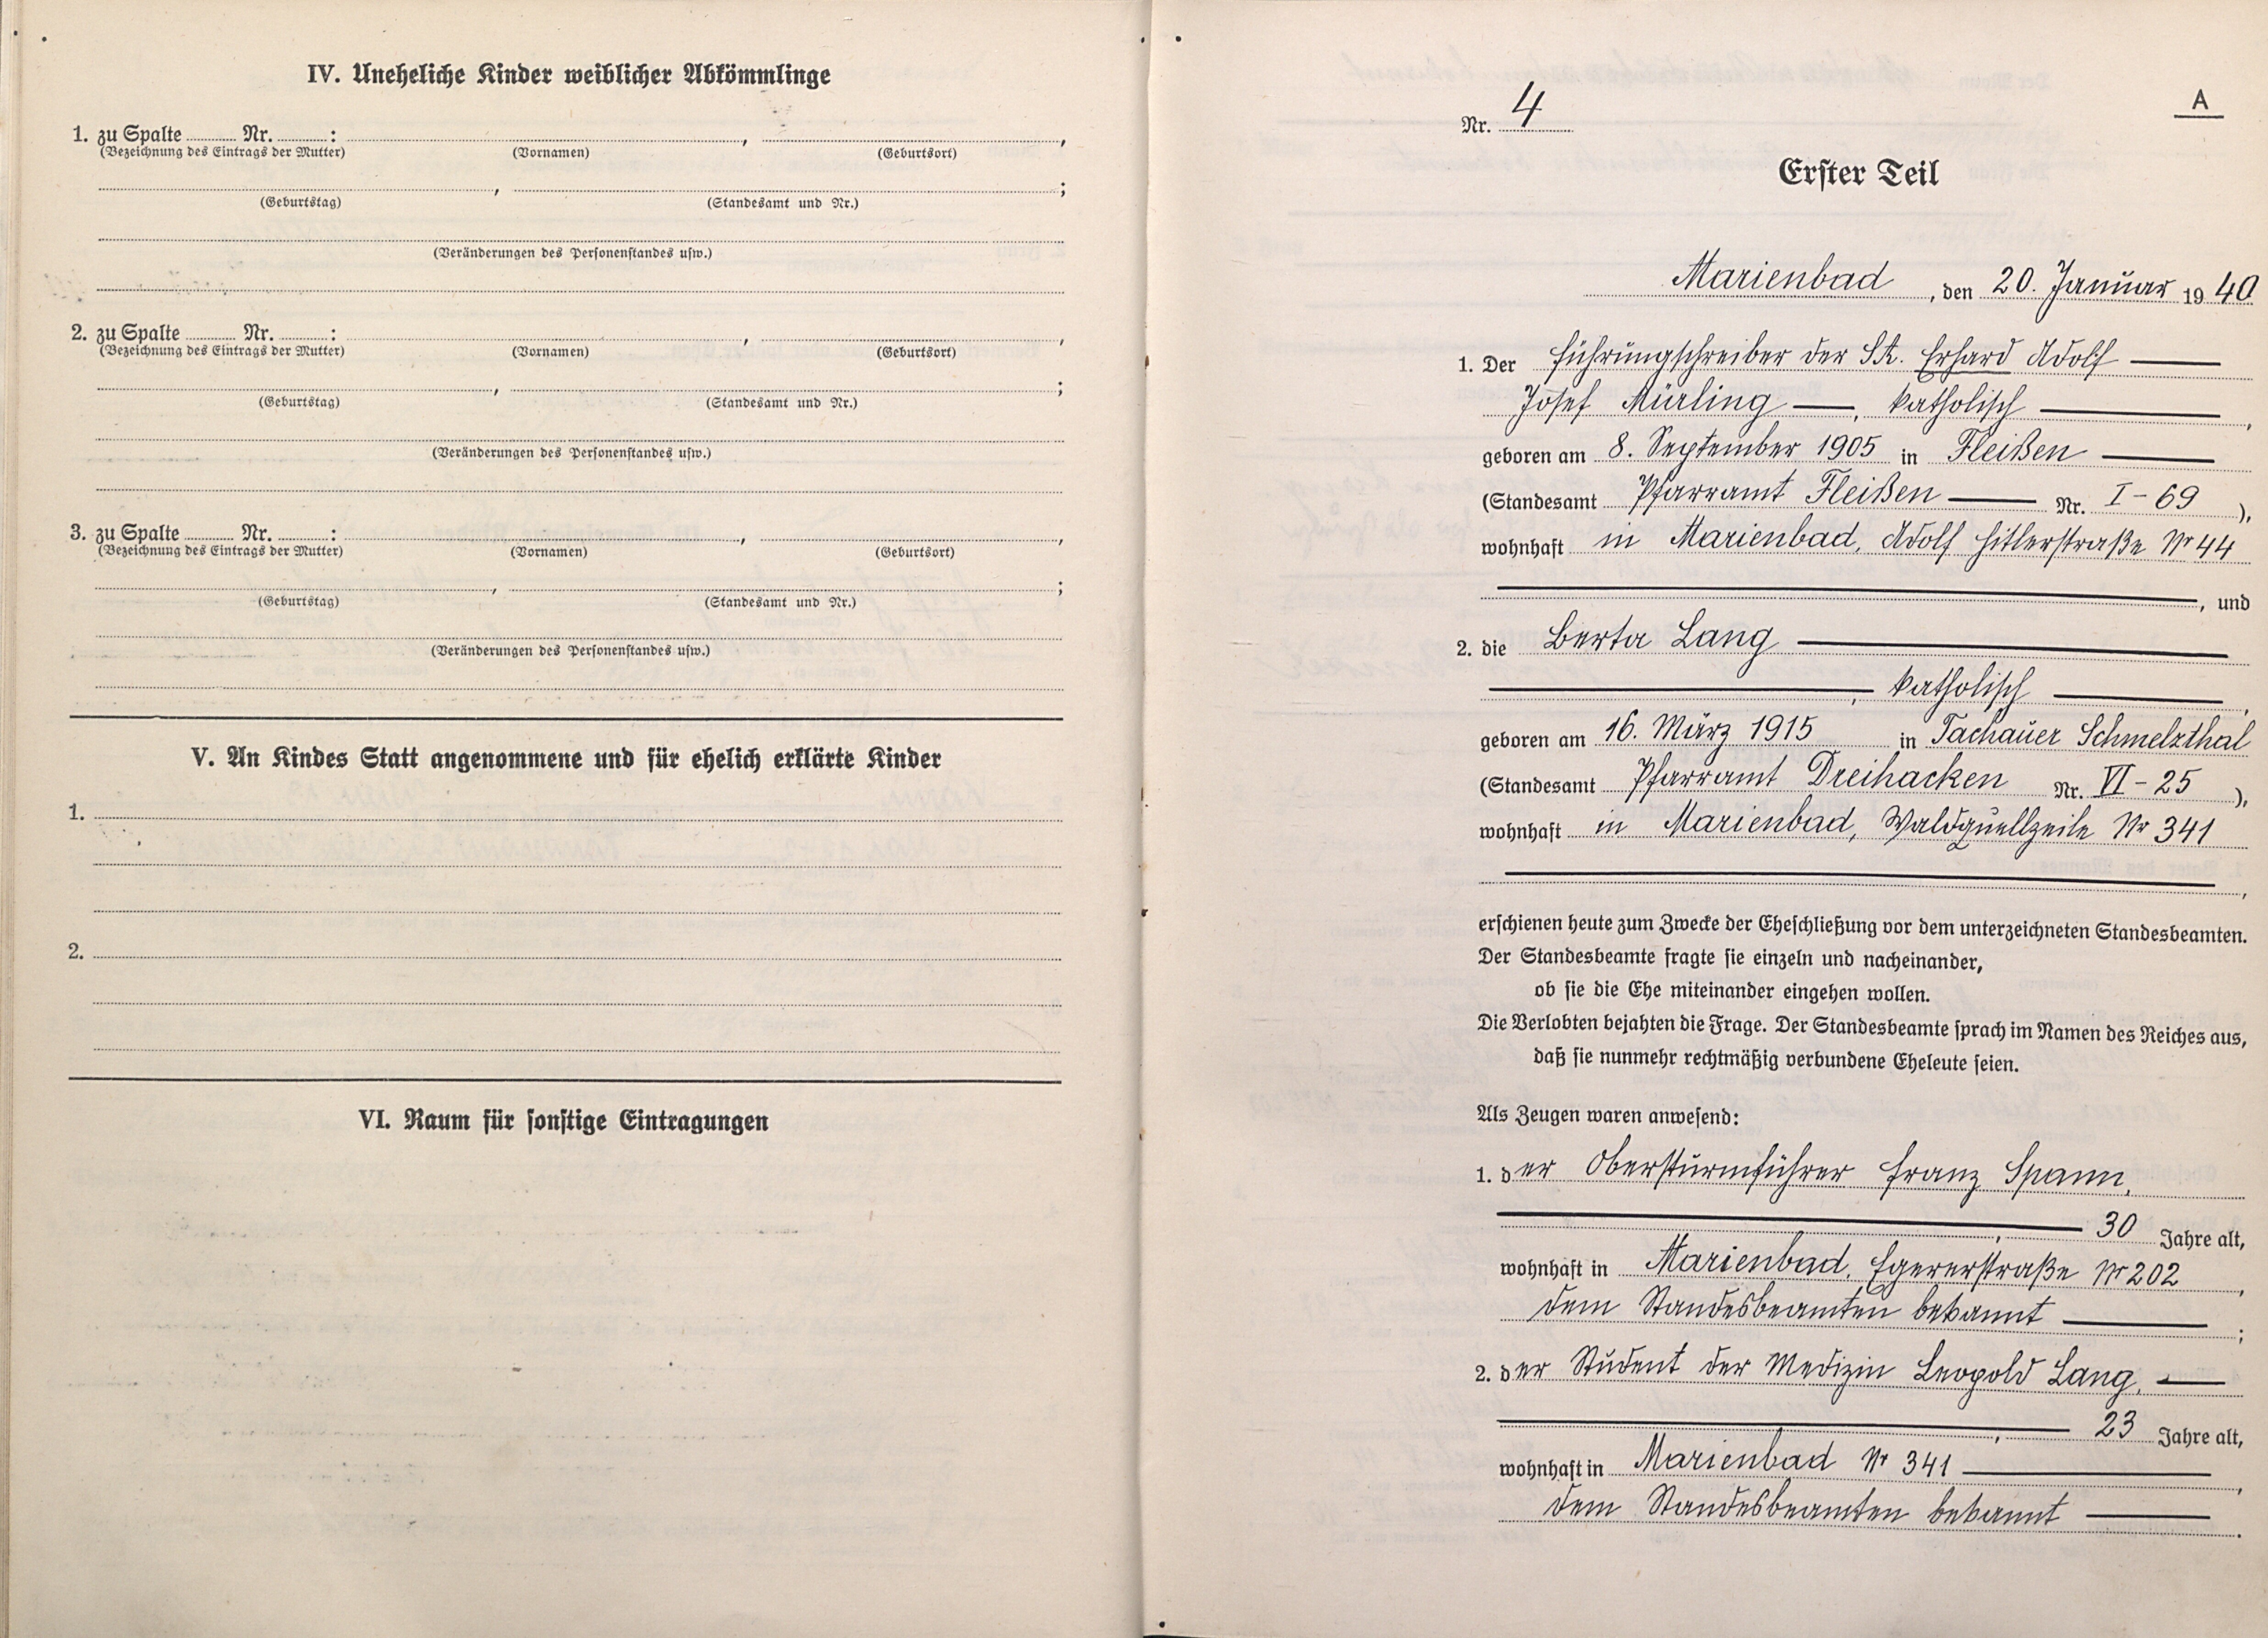 IV. Uneheliche Kinder weiblicher Abkömmlinge
1. zu Spalte ........ Nr. ........ : , ,
(Bezeichnung des Eintrags der Mutter) (Vornamen) (Geburtsort)
, ;
(Geburtstag) (Standesamt und Nr.)
(Veränderungen des Personenstandes usw.)
2. zu Spalte ........ Nr. ........ : , ,
(Bezeichnung des Eintrags der Mutter) (Vornamen) (Geburtsort)
, ;
(Geburtstag) (Standesamt und Nr.)
(Veränderungen des Personenstandes usw.)
3. zu Spalte ........ Nr. ........ : , ,
(Bezeichnung des Eintrags der Mutter) (Vornamen) (Geburtsort)
, ;
(Geburtstag) (Standesamt und Nr.)
(Veränderungen des Personenstandes usw.)
V. An Kindes Statt angenommene und für ehelich erklärte Kinder
1.
2.
VI. Raum für sonstige Eintragungen
A
Nr. 4
Erster Teil
Marienbad, den 20. Januar 1940
1. Der Führungschreiber der SA. Erhard Adolf
Josef Mürling, katholisch,
geboren am 8. September 1905 in Fleißen
(Standesamt Pfarramt Fleißen Nr. I-69),
wohnhaft in Marienbad, Adolf Hitlerstraße Nr 44
, und
2. die Berta Lang
, katholisch,
geboren am 16. März 1915 in Tachauer Schmelzthal
(Standesamt Pfarramt Dreihacken Nr. VI-25),
wohnhaft in Marienbad, Waldquellzeile Nr 341
,
erschienen heute zum Zwecke der Eheschließung vor dem unterzeichneten Standesbeamten.
Der Standesbeamte fragte sie einzeln und nacheinander,
ob sie die Ehe miteinander eingehen wollen.
Die Verlobten bejahten die Frage. Der Standesbeamte sprach im Namen des Reiches aus,
daß sie nunmehr rechtmäßig verbundene Eheleute seien.
Als Zeugen waren anwesend:
1. der Obersturmführer Franz Spann,
, 30 Jahre alt,
wohnhaft in Marienbad, Egererstraße Nr 202,
dem Standesbeamten bekannt;
2. der Student der Medizin Leopold Lang,
, 23 Jahre alt,
wohnhaft in Marienbad Nr 341,
dem Standesbeamten bekannt.